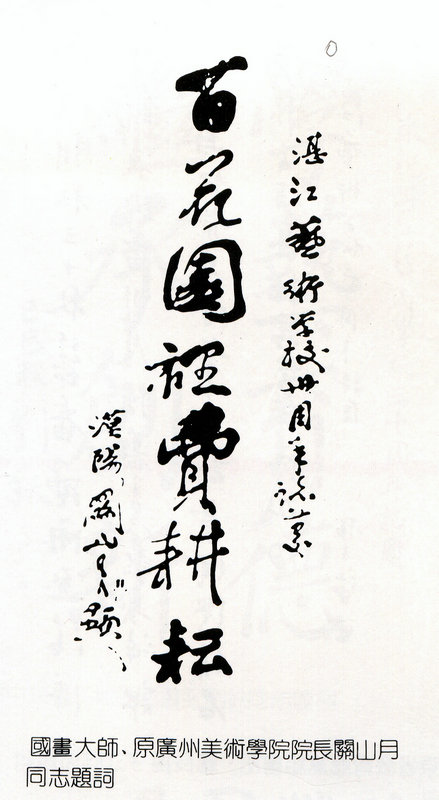 湛江藝術学校卅周年誌慶
百花園裡費耕耘
漠陽關山月題
國畫大師、原廣州美術學院院長關山月
同志題詞